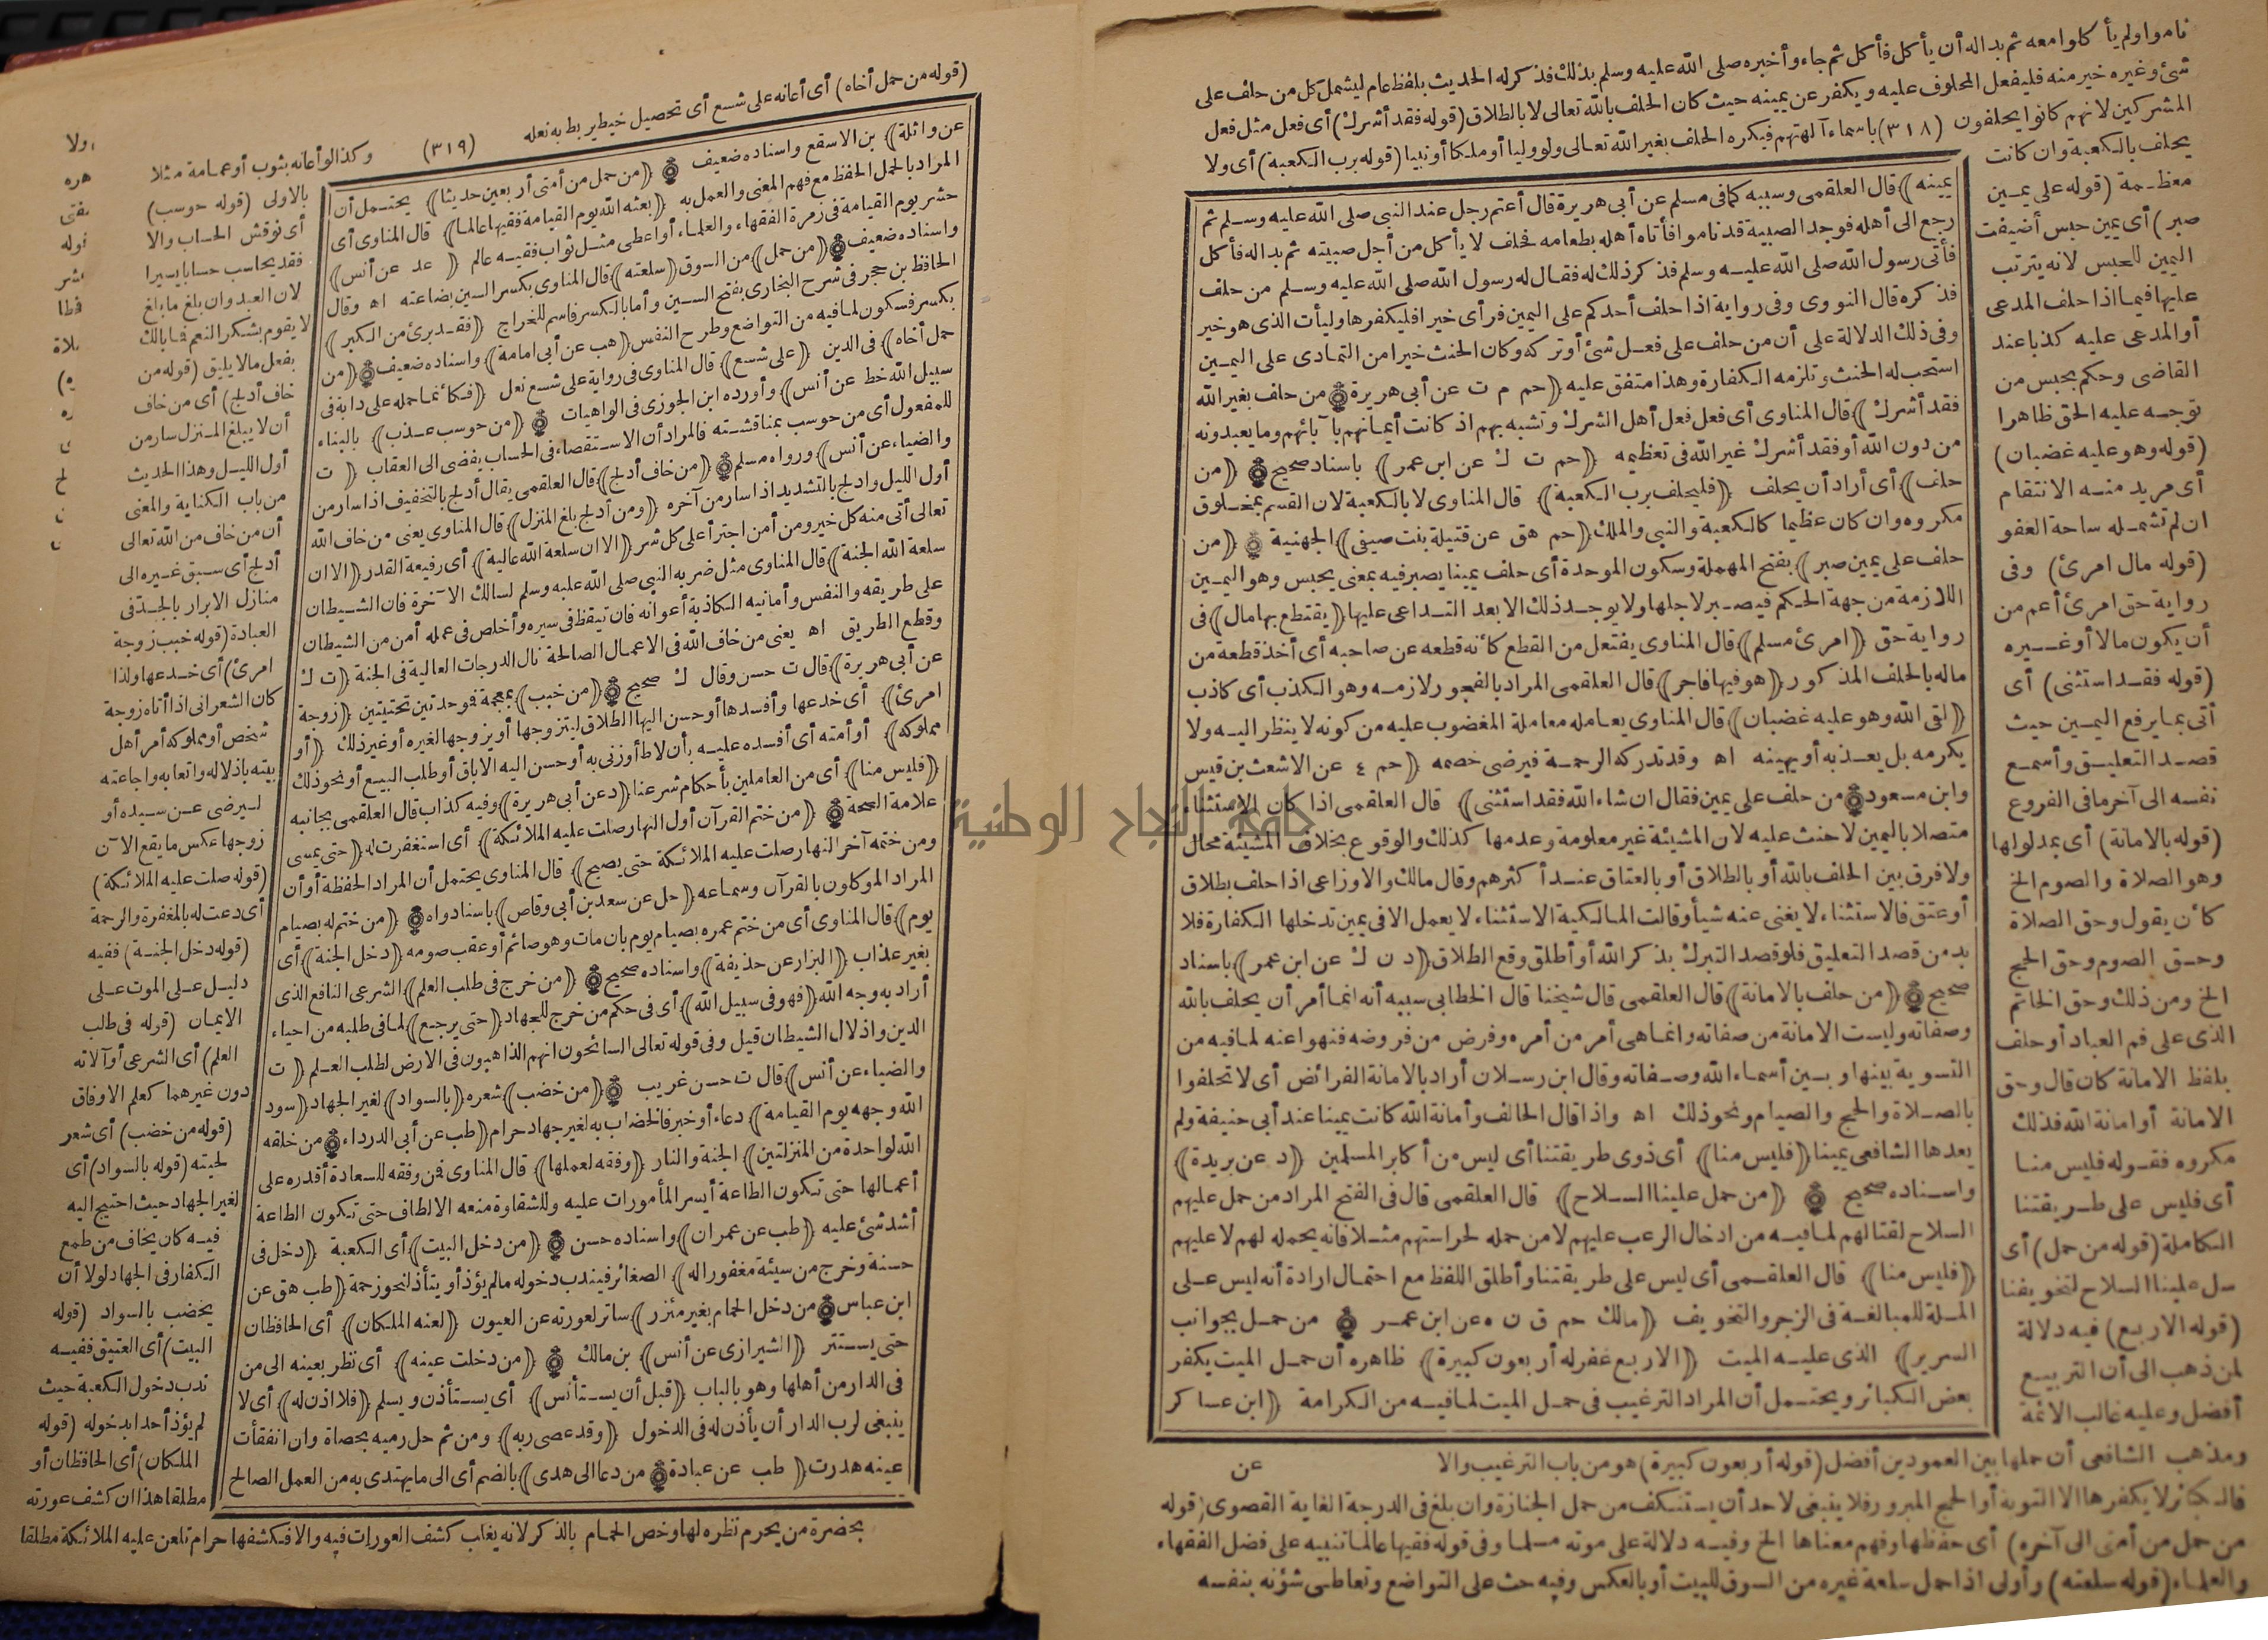 ناموا ولم يأكلوا معه ثم بدا له أن يأكل فأكل ثم جاء وأخبره صلى الله عليه وسلم بذلك فذكر له الحديث بلفظ عام ليشمل كل من حلف على
شئ وغيره خير منه فليفعل المحلوف عليه ويكفر عن يمينه حيث كان الحلف بالله تعالى لا بالطلاق (قوله فقد أشرك) أى فعل مثل فعل
المشركين لانهم كانوا يحلفون (٣١٨) باسماء آلهتهم فيكره الحلف بغير الله تعالى ولو وليا أو ملكا أو نبيا (قوله برب الكعبة) أى ولا
يحلف بالكعبة وان كانت
معظمة (قوله على يمين
صبر) أى يمين حبس أضيفت
اليمين للحبس لانه يترتب
عليها فيما اذا حلف المدعى
أو المدعى عليه كذبا عند
القاضى وحكم بحبس من
توجه عليه الحق ظاهرا
(قوله وهو عليه غضبان)
أى مريد منه الانتقام
ان لم تشمله ساحة العفو
(قوله مال امرئ) وفى
رواية حق امرئ أعم من
أن يكون مالا أو غيره
(قوله فقد استثنى) أى
أتى بما يرفع اليمين حيث
قصد التعليق وأسمع
نفسه الى آخر ما فى الفروع
(قوله بالامانة) أى بمدلولها
وهو الصلاة والصوم الخ
كأن يقول وحق الصلاة
وحق الصوم وحق الحج
الخ ومن ذلك وحق الخاتم
الذى على فم العباد أو حلف
بلفظ الامانة كان قال وحق
الامانة أو امانة الله فذلك
مكروه فقوله فليس منا
أى فليس على طريقتنا
الكاملة (قوله من حمل) أى
سل علينا السلاح لتخويفنا
(قوله الاربع) فيه دلالة
لمن ذهب الى أن التربيع
أفضل وعليه غالب الائمة
يمينه) قال العلقمى وسببه كما فى مسلم عن أبى هريرة قال أعتم رجل عند النبى صلى الله عليه وسلم ثم
رجع الى أهله فوجد الصبية قد ناموا فأتاه أهله بطعامه فحلف لا يأكل من أجل صبيته ثم بدا له فأكل
فأتى رسول الله صلى الله عليه وسلم فذكر ذلك له فقال له رسول الله صلى الله عليه وسلم من حلف
فذكره قال النووى وفى رواية اذا حلف أحدكم على اليمين فرأى خيرا فليكفرها وليأت الذى هو خير
وفى ذلك الدلالة على أن من حلف على فعل شئ أو تركه وكان الحنث خيرا من التمادى على اليمين
استحب له الحنث وتلزمه الكفارة وهذا متفق عليه (حم م ت عن أبى هريرة) من حلف بغير الله
فقد أشرك) قال المناوى أى فعل فعل أهل الشرك وتشبه بهم اذ كانت أيمانهم بآبائهم وما يعبدونه
من دون الله أو فقد أشرك غير الله فى تعظيمه (حم ت ك عن ابن عمر) باسناد صحيح (من
حلف) أى أراد أن يحلف (فليحلف برب الكعبة) قال المناوى لا بالكعبة لان القسم بمخلوق
مكروه وان كان عظيما كالكعبة والنبى والملك (حم هق عن قتيلة بنت صيفى) الجهنية (من
حلف على يمين صبر) بفتح المهملة وسكون الموحدة أى حلف يمينا يصبر فيه بمعنى يحبس وهو اليمين
اللازمة من جهة الحكم فيصبر لاجلها ولا يوجد ذلك الا بعد التداعى عليها (يقتطع بها مال) فى
رواية حق (امرئ مسلم) قال المناوى يفتعل من القطع كأنه قطعه عن صاحبه أى أخذ قطعة من
ماله بالحلف المذكور (هو فيها فاجر) قال العلقمى المراد بالفجور لازمه وهو الكذب أى كاذب
(لقى الله وهو عليه غضبان) قال المناوى يعامله معاملة المغضوب عليه من كونه لا ينظر اليه ولا
يكرمه بل يعذبه أو يهينه اه وقد تدركه الرحمة فيرضى خصمه (حم ٤ عن الاشعث بن قيس
وابن مسعود) من حلف على يمين فقال ان شاء الله فقد استثنى) قال العلقمى اذا كان الاستثناء
متصلا باليمين لا حنث عليه لان المشيئة غير معلومة وعدمها كذلك والوقوع بخلاف المشيئة محال
ولا فرق بين الحلف بالله أو بالطلاق أو بالعتاق عند أكثرهم وقال مالك والاوزاعى اذا حلف بطلاق
أو عتق فالاستثناء لا يغنى عنه شيأ وقالت المالكية الاستثناء لا يعمل الا فى يمين تدخلها الكفارة فلا
بد من قصد التعليق فلو قصد التبرك بذكر الله أو أطلق وقع الطلاق (د ن ك عن ابن عمر) باسناد
صحيح (من حلف بالامانة) قال العلقمى قال شيخنا قال الخطابى سببه أنه انما أمر أن يحلف بالله
وصفاته وليست الامانة من صفاته وانما هى أمر من أمره وفرض من فروضه فنهوا عنه لما فيه من
التسوية بينها وبين أسماء الله وصفاته وقال ابن رسلان أراد بالامانة الفرائض أى لا تحلفوا
بالصلاة والحج والصيام ونحو ذلك اه واذا قال الحالف وأمانة الله كانت يمينا عند أبى حنيفة ولم
يعدها الشافعى يمينا (فليس منا) أى ذوى طريقتنا أى ليس من أكابر المسلمين (د عن بريدة)
واسناده صحيح (من حمل علينا السلاح) قال العلقمى قال فى الفتح المراد من حمل عليهم
السلاح لقتالهم لما فيه من ادخال الرعب عليهم لا من حمله لحراستهم مثلا فانه يحمله لهم لا عليهم
(فليس منا) قال العلقمى أى ليس على طريقتنا وأطلق اللفظ مع احتمال ارادة أنه ليس على
الملة للمبالغة فى الزجر والتخويف (مالك حم ق ن ه عن ابن عمر من حمل بجوانب
السرير) الذى عليه الميت (الاربع غفر له أربعون كبيرة) ظاهره أن حمل الميت يكفر
بعض الكبائر ويحتمل أن المراد الترغيب فى حمل الميت لما فيه من الكرامة (ابن عساكر
ومذهب الشافعى أن حملها بين العمودين أفضل (قوله أربعون كبيرة) هو من باب الترغيب والا عن
فالكبائر لا يكفرها الا التوبة أو الحج المبرور فلا ينبغى لاحد أن يستنكف من حمل الجنازة وان بلغ فى الدرجة الغاية القصوى (قوله
من حمل من أمتى الى آخره) أى حفظها وفهم معناها الخ وفيه دلالة على موته مسلما وفى قوله فقيها عالما تنبيه على فضل الفقهاء
والعلماء (قوله سلعته) وأولى اذا حمل سلعة غيره من السوق للبيت أو بالعكس وفيه حث على التواضع وتعاطى شؤنه بنفسه
(قوله من حمل أخاه) أى أعانه على شسع أى تحصيل خيط يربط به نعله
(٣١٩) وكذا لو أعانه بثوب أو عمامة مثلا
بالاولى (قوله حوسب)
أى نوقش الحساب والا
فقد يحاسب حسابا يسيرا
لان العبد وان بلغ ما بلغ
لا يقوم بشكر النعم فما بالك
بفعل مالا يليق (قوله من
خاف أدلج) أى من خاف
أن لا يبلغ المنزل سار من
أول الليل وهذا الحديث
من باب الكناية والمعنى
أن من خاف من الله تعالى
أدلج أى سبق غيره الى
منازل الابرار بالجد فى
العبادة (قوله خبب زوجة
امرئ) أى خدعها ولذا
كان الشعرانى اذا أتاه زوجة
شخص أو مملوكه أمر أهل
بيته باذلاله واتعابه واجاعته
ليرضى عن سيده أو
زوجها عكس ما يقع الآن
(قوله صلت عليه الملائكة)
أى دعت له بالمغفرة والرحمة
(قوله دخل الجنة) ففيه
دليل على الموت على
الايمان (قوله فى طلب
العلم) أى الشرعى أو آلاته
دون غيرهما كعلم الاوفاق
(قوله من خضب) أى شعر
لحيته (قوله بالسواد) أى
لغير الجهاد حيث احتيج اليه
فيه كان يخاف من طمع
الكفار فى الجهاد لولا أن
يخضب بالسواد (قوله
البيت) أى العتيق ففيه
ندب دخول الكعبة حيث
لم يؤذ أحدا بدخوله (قوله
الملكان) أى الحافظان أو
مطلقا هذا ان كشف عورته
عن واثلة) بن الاسقع واسناده ضعيف (من حمل من أمتى أربعين حديثا) يحتمل أن
المراد بالحمل الحفظ مع فهم المعنى والعمل به (بعثه الله يوم القيامة فقيها عالما) قال المناوى أى
حشر يوم القيامة فى زمرة الفقهاء والعلماء أو اعطى مثل ثواب فقيه عالم (عد عن أنس)
واسناده ضعيف (من حمل) من السوق (سلعته) قال المناوى بكسر السين بضاعته اه وقال
الحافظ بن حجر فى شرح البخارى بفتح السين وأما بالكسر فاسم للخراج (فقد برئ من الكبر)
بكسر فسكون لما فيه من التواضع وطرح النفس (هب عن أبى امامة) واسناده ضعيف (من
حمل أخاه) فى الدين (على شسع) قال المناوى فى رواية على شسع نعل (فكأنما حمله على دابة فى
سبيل الله خط عن أنس) وأورده ابن الجوزى فى الواهيات (من حوسب عذب) بالبناء
للمفعول أى من حوسب بمناقشته فالمراد أن الاستقصاء فى الحساب يفضى الى العقاب (ت
والضياء عن أنس) ورواه مسلم (من خاف أدلج) قال العلقمى يقال أدلج بالتخفيف اذا سار من
أول الليل وادلج بالتشديد اذا سار من آخره (ومن أدلج بلغ المنزل) قال المناوى يعنى من خاف الله
تعالى أتى منه كل خير ومن أمن اجترأ على كل شر (الا ان سلعة الله غالية) أى رفيعة القدر (الا ان
سلعة الله الجنة) قال المناوى مثل ضربه النبى صلى الله عليه وسلم لسالك الآخرة فان الشيطان
على طريقه والنفس وأمانيه الكاذبة أعوانه فان تيقظ فى سيره وأخلص فى عمله أمن من الشيطان
وقطع الطريق اه يعنى من خاف الله فى الاعمال الصالحة نال الدرجات العالية فى الجنة (ت ك
عن أبى هريرة) قال ت حسن وقال ك صحيح (من خبب) بمعجمة فوحدتين تحتيتين (زوجة
امرئ) أى خدعها وأفسدها أو حسن اليها الطلاق ليتزوجها أو يزوجها لغيره أو غير ذلك (أو
مملوكه) أو أمته أى أفسده عليه بأن لاط أو زنى به أو حسن اليه الاباق أو طلب البيع أو نحو ذلك
(فليس منا) أى من العاملين بأحكام شرعنا (د عن أبى هريرة) وفيه كذاب قال العلقمى بجانبه
علامة الصحة (من ختم القرآن أول النهار صلت عليه الملائكة) أى استغفرت له (حتى يمسى
ومن ختمه آخر النهار صلت عليه الملائكة حتى يصبح) قال المناوى يحتمل أن المراد الحفظة أو أن
المراد الموكلون بالقرآن وسماعه (حل عن سعد بن أبى وقاص) باسناد واه (من ختم له بصيام
يوم) قال المناوى أى من ختم عمره بصيام يوم بان مات وهو صائم أو عقب صومه (دخل الجنة) أى
بغير عذاب (البزار عن حذيفة) واسناده صحيح (من خرج فى طلب العلم) الشرعى النافع الذى
أراد به وجه الله (فهو فى سبيل الله) أى فى حكم من خرج للجهاد (حتى يرجع) لما فى طلبه من احياء
الدين واذلال الشيطان قيل وفى قوله تعالى السائحون انهم الذاهبون فى الارض لطلب العلم (ت
والضياء عن أنس) قال ت حسن غريب (من خضب) شعره (بالسواد) لغير الجهاد (سود
الله وجهه يوم القيامة) دعاء أو خبر فالخضاب به لغير جهاد حرام (طب عن أبى الدرداء) من خلقه
الله لواحدة من المنزلتين) الجنة والنار (وفقه لعملها) قال المناوى فمن وفقه للسعادة أقدره على
أعمالها حتى تكون الطاعة أيسر المأمورات عليه وللشقاوة منعه الالطاف حتى تكون الطاعة
أشد شئ عليه (طب عن عمران) واسناده حسن (من دخل البيت) أى الكعبة (دخل فى
حسنة وخرج من سيئة مغفورا له) الصغائر فيندب دخوله مالم يؤذ أو يتأذ لنحو زحمة (طب هق عن
ابن عباس) من دخل الحمام بغير مئزر) ساتر لعورته عن العيون (لعنه الملكان) أى الحافظان
حتى يستتر (الشيرازى عن أنس) بن مالك (من دخلت عينه) أى نظر بعينه الى من
فى الدار من أهلها وهو بالباب (قبل أن يستأنس) أى يستأذن ويسلم (فلا اذن له) أى لا
ينبغى لرب الدار أن يأذن له فى الدخول (وقد عصى ربه) ومن ثم حل رميه بحصاة وان انفقأت
عينه هدرت (طب عن عبادة) من دعا الى هدى) بالضم أى الى ما يهتدى به من العمل الصالح
بحضرة من يحرم نظره لها وخص الحمام بالذكر لانه يغلب كشف العورات فيه والا فكشفها حرام تلعن عليه الملائكة مطلقا
جامعة النجاح الوطنية